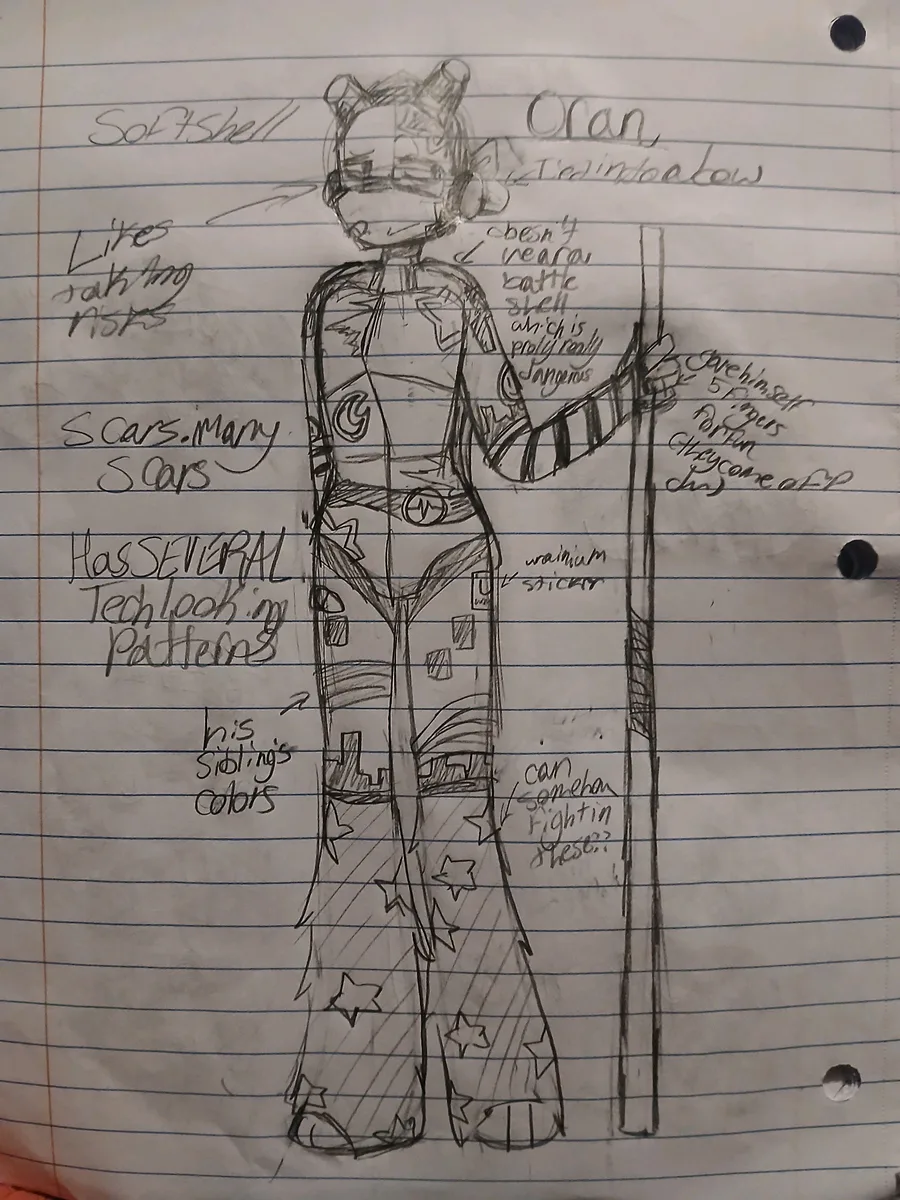 Softshell
Oran,
Tied into a bow
Likes
taking
risks
doesn't
wear a
battle
shell
which is
proly really
dangerous
Gave himself
5 fingers
for fun
(they come off
Scars. Many
Scars
Has SEVERAL
Tech looking
Patterns
urainium
sticker
U
his
sibling's
colors
can
somehow
fight in
these??